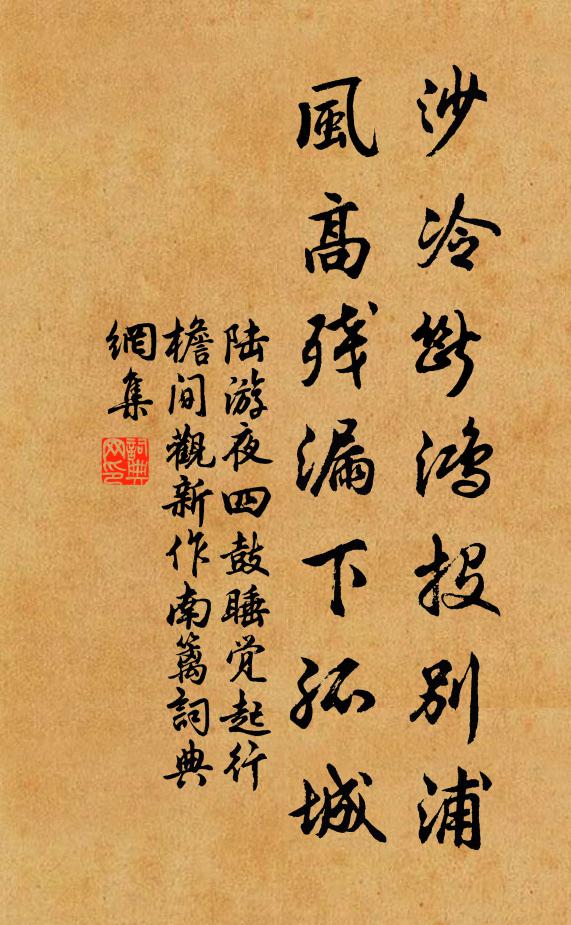 沙冷断鸿投别浦
風高残漏下孤城
陆游夜四鼓睡觉起行
檐间觀新作南篱詞典
網集
詞典网印